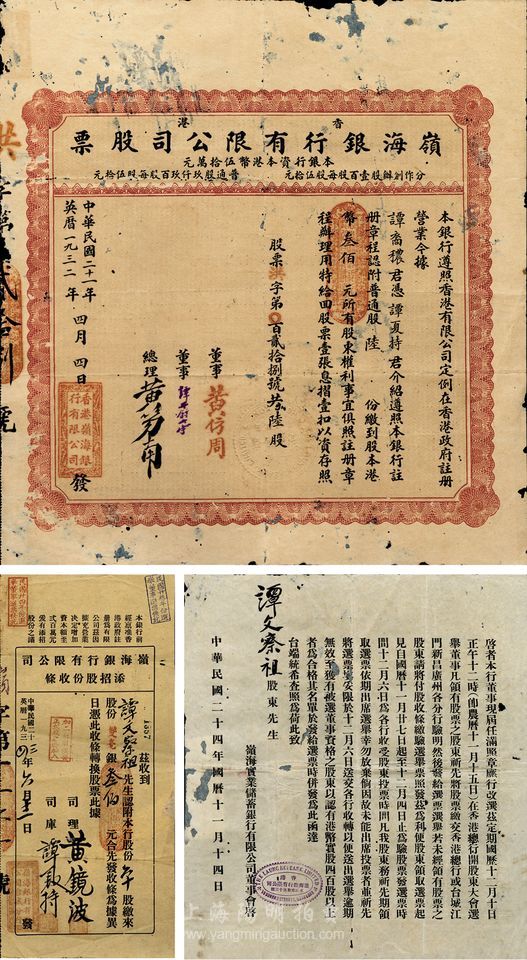 香港
嶺海銀行有限公司股票
本銀行資本港幣伍拾萬元
分作創辦股壹百股每股伍拾元
普通股玖仟玖百股每股伍拾元
本銀行遵照香港有限公司定例在香港政府註冊
營業今據
譚裔禯君憑譚夏持君介紹遵照本銀行註
冊章程認附普通股陸份繳到股本港
幣叁佰元所有股東權利事宜俱照註冊章
程辦理用特給回股票壹張息摺壹扣以資存照
股票洪字第〇百貳拾捌號共陸股
董事 黃信周
董事
總理
中華民國二十一年
英曆一九三二年
四月四日
發
香港嶺海銀行有限公司
嶺海銀行有限公司
添招股份收條
本銀行前
經稟准香
港政府註
冊為有限
公司茲因
擴充營業
決定增加
資本額至
貳百萬元
爰有添招
股份之議
茲收到
譚文蔡祖先生認附本行股份
股繳來
銀叁佰元合先發給收條為據異
日憑此收條轉換股票此據
司理 黃鏡波
司庫 譚毅持
發
譚文蔡祖
股東先生
啓者本行董事現屆任滿照章應行改選茲定期國曆十二月十日
正午十二時(即農曆十一月十五日)在香港總行開股東大會選
舉董事凡領有股票之股東祈先將股票繳交香港總行或台城江
門新昌廣州各分行驗明然後發給選票選舉若未經領有股票之
股東請將付股收條繳驗選舉票照發茲為利便股東領取選票起
見自國曆十一月廿七日起至十二月四日止為驗股票發選票時
間十二月六日為各行收受股東投票時間凡我股東務祈先期領
取選票依期出席選舉幸勿放棄倘因故未能出席投票者並祈先
將選票填妥限於十二月六日送交各行收轉以便送出選舉逾期
無效至獲有被選董事資格之股東以認有港幣實股四百股以上
者為合格其名單於發給選票時併發為此函達
台端統希查照為荷此致
嶺海實業儲蓄銀行有限公司董事會啓
中華民國二十四年國曆十一月十四日
上海陽明拍賣
www.yangmingauction.com